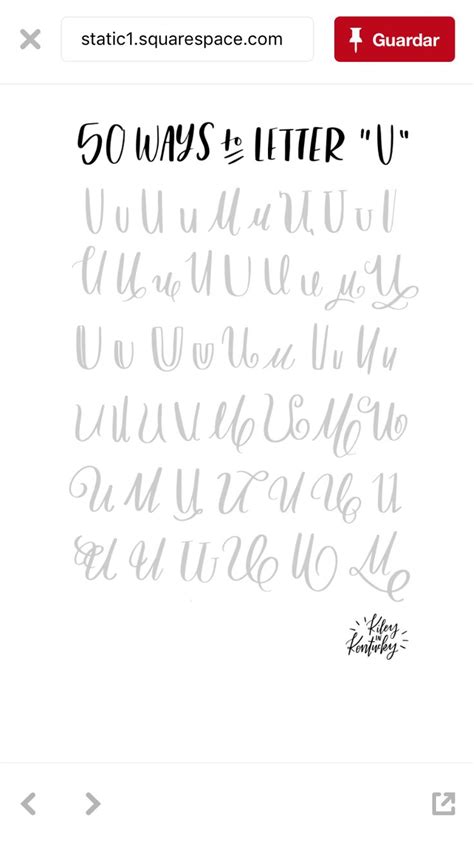 static1.squarespace.com
Guardar
50 WAYS to LETTER "U"
U u U u U u U U u U
U U u U U U u u U
U u U u U u U u U u
U U U U U U U U
U U U U U U U
U U U U U U
Kiley
IN
Kentucky